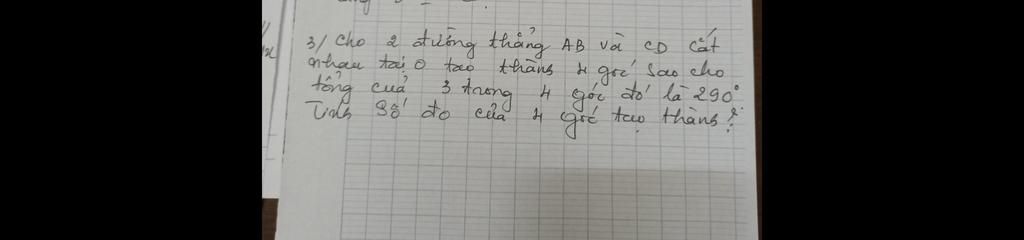 3/ Cho 2 đường thẳng AB và CD cắt
nhau tại O tạo thành 4 góc sao cho
tổng của 3 trong 4 góc đó là 290°.
Tính số đo của 4 góc tạo thành?